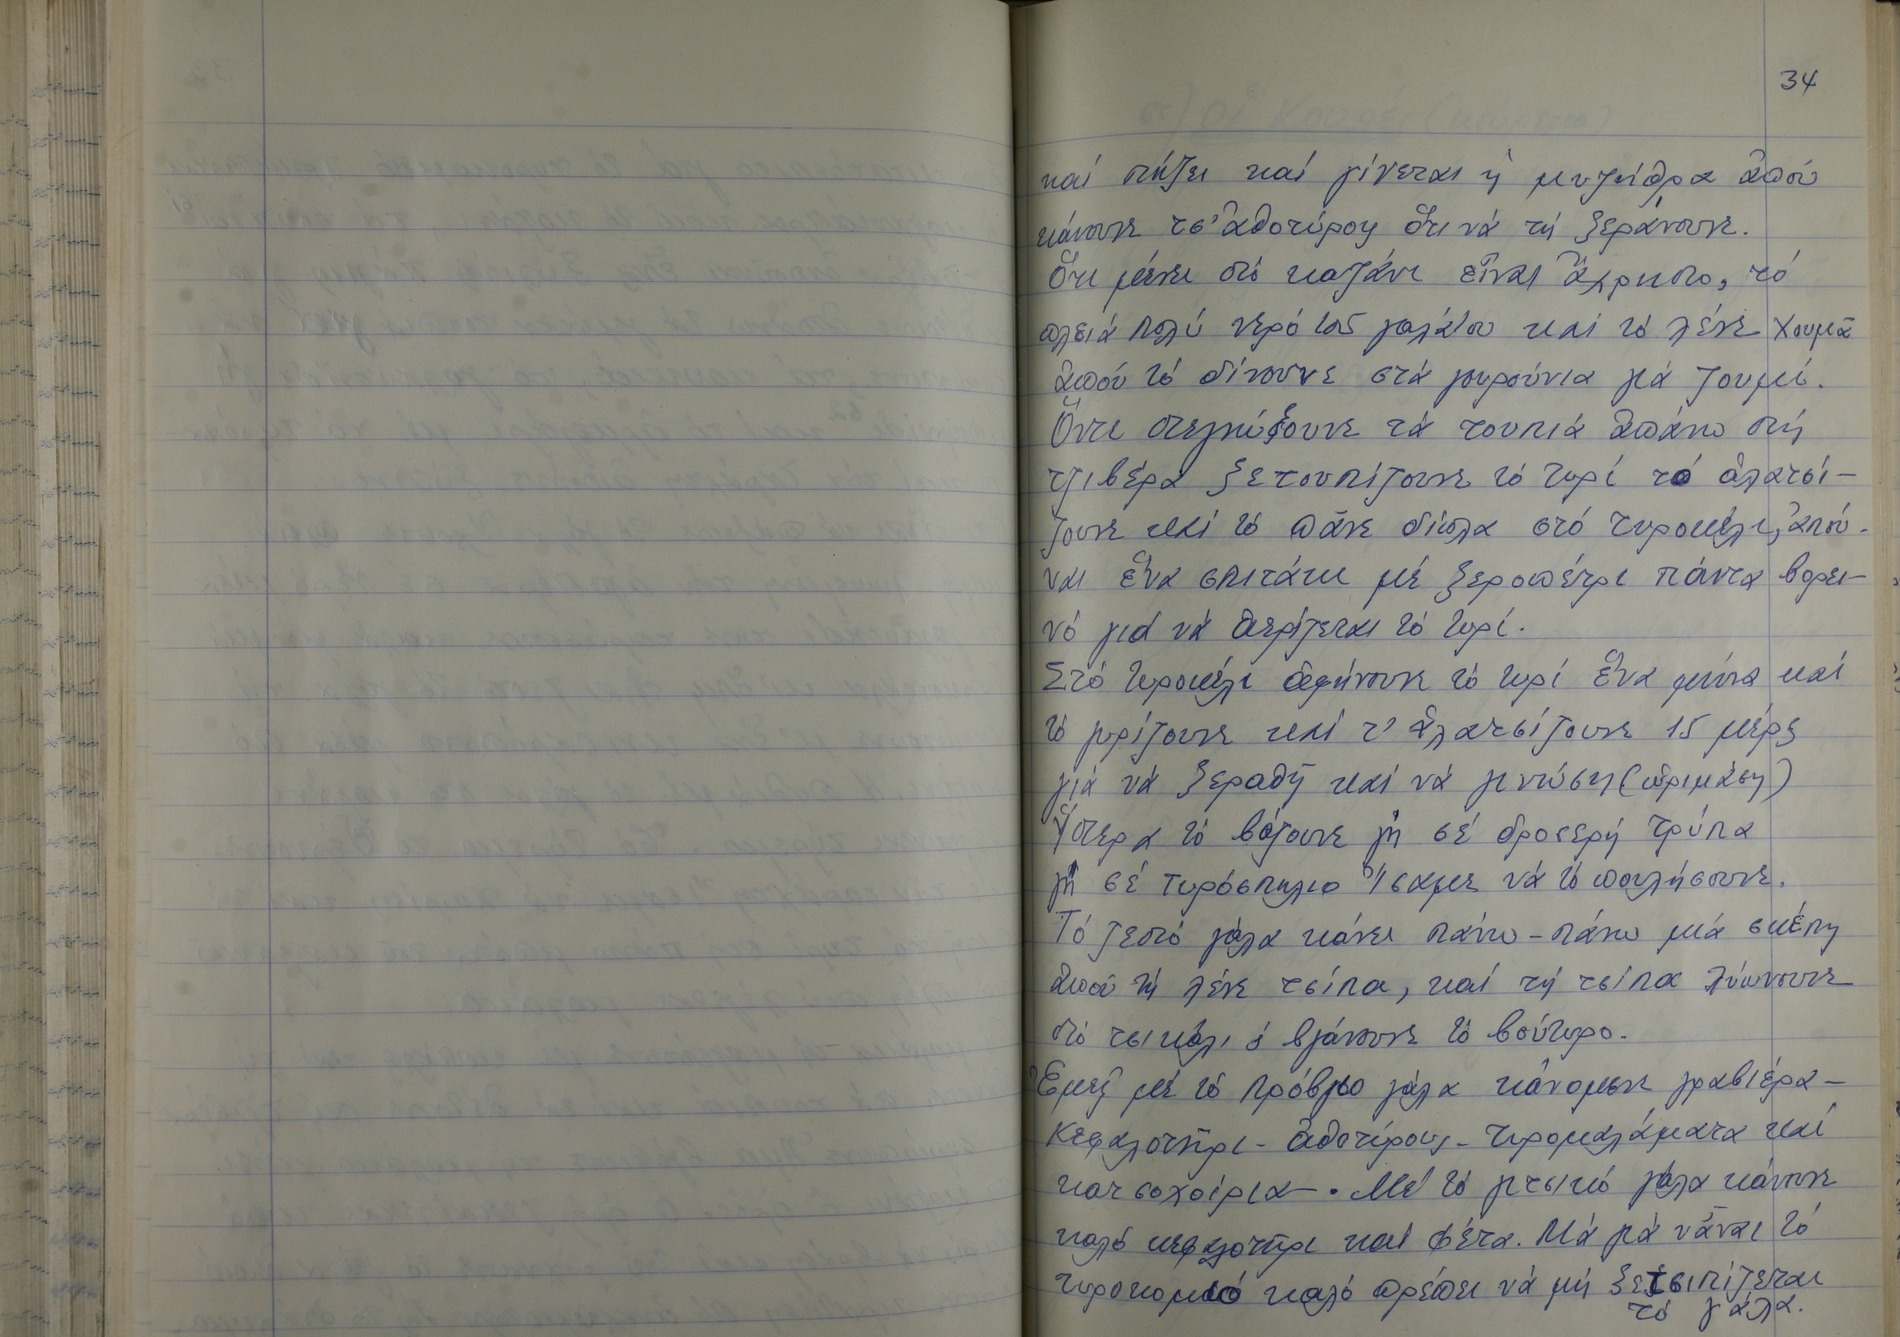 34
καί πήζει καί γίνεται ἡ μυζήθρα ἀπού
κάνουνε τσ' ἀθοτύρους ὄτι νά τή ξεράνουνε.
Ὅτι μένει στό καζάνι εἶναι ἄχρηστο, τό
πλειά πολύ νερό τοῦ γαλάτου καί τό λένε χουμᾶ
ἀπού τό δίνουνε στά γουρούνια γιά ζουμί.
Ὄντε στεγνώξουνε τά τουπιά ἀπάνω στή
τζιβέρα ξετουπίζουνε τό τυρί τό ἀλατσί-
ζουνε καί τό πᾶνε δίπλα στό τυροκέλι, ἀπού-
ναι ἕνα σπιτάκι μέ ξεροπέτρι πάντα βορει-
νό γιά νά ἀερίζεται τό τυρί.
Στό τυροκέλι ἀφήνουνε τό τυρί ἕνα μήνα καί
τό γυρίζουνε καί τ' ἀλατσίζουνε 15 μέρες
γιά νά ξεραθῆ καί νά γινώση (ὡριμάση)
Ὕστερα τό βάζουνε γή σέ δροσερή τρύπα
γή σέ τυρόσπηλιο ἴσαμε νά τό πουλήσουνε.
Τό ζεστό γάλα κάνει πάνω-πάνω μιά σκέπη
ἀπού τή λένε τσίπα, καί τή τσίπα λυώνουνε
στό τσικάλι ὁ βγάνουνε τό βούτυρο.
Ἐμεῖς μέ τό πρόβγιο γάλα κάνομενε γραβιέρα-
κεφαλοτῆρι- ἀθοτύρους- τυρομαλάματα καί
κατσοχοίρια-. Μέ τό γιτσικό γάλα κάνουνε
καλό κεφαλοτῆρι καί φέτα. Μά γιά νἆναι τό
τυροκομιό καλό πρέπει νά μή ξετσιπίζεται
τό γάλα.